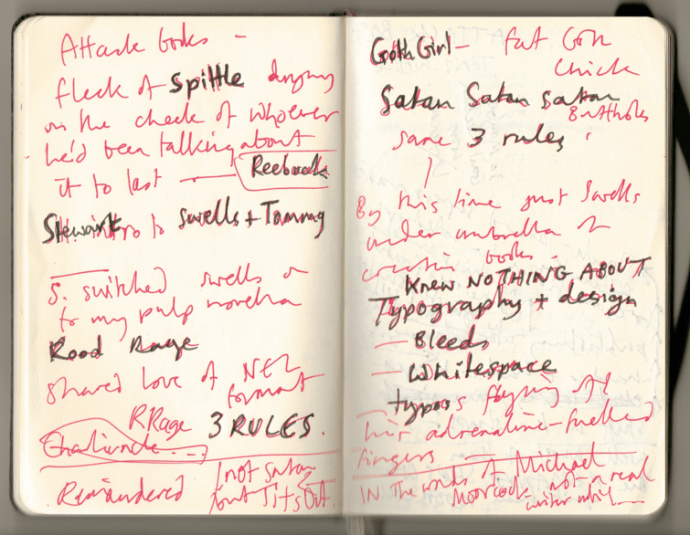 Attack books –
fleck of spittle drying
on the cheek of whoever
he'd been talking about
it to last — Reebook
Stewart intro to swells + Tommy
S. switched swells on
to my pulp novella
Road Rage
shared love of NEL
format
RRage 3 RULES.
Remaindered
not satan
but Tits Out
Goth Girl – fat Goth
chick
Satan Satan Satan
Buttholes
same 3 rules
By this time just Swells
under umbrella of
creation books.
Knew NOTHING ABOUT
Typography + design
– Bleeds
– Whitespace
– typos flying off
his adrenaline-fuelled
fingers
IN the words of Michael
Moorcock not a real
writer